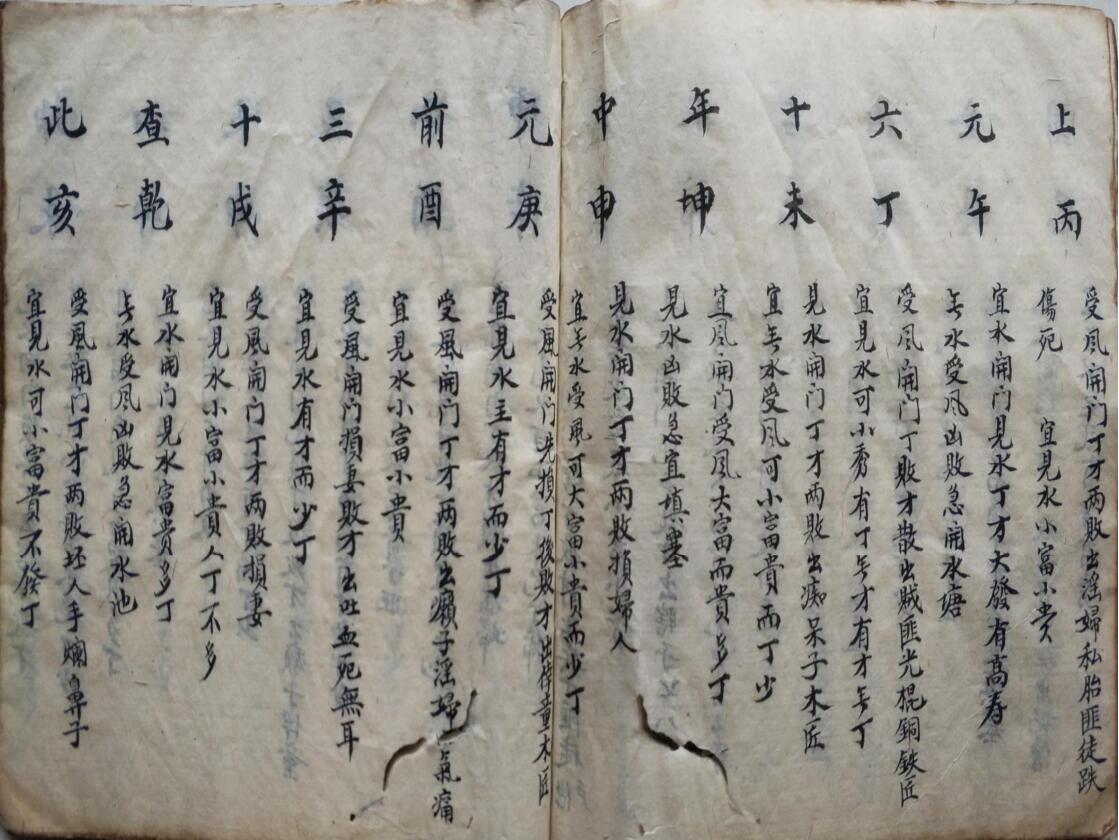 上元六十年中元前三十查此
丙午丁未坤申庚酉辛戌乾亥
受風開门丁才两敗出淫婦私胎匪徒跌
傷死 宜見水小富小贵
宜水開门見水丁才大發有高寿
无水受风凶敗急開水塘
受风開门丁敗才散出贼匪光棍銅鉄匠
宜見水可小秀有丁无才有才无丁
見水開门丁才两敗出痴呆子木匠
宜无水受风可小富貴而丁少
宜風開门受风大富而貴多丁
見水凶敗急宜填塞
見水開门丁才两敗損婦人
宜无水受風可大富小貴而少丁
受風開门先損丁後敗才出童木匠
宜見水主有才而少丁
受風開门丁才两敗出癩子淫婦氣痛
宜見水小富小貴
受風開门損妻敗才出吐血死無耳
宜見水有才而少丁
受風開门丁才两敗損妻
宜見水小富小貴人丁不多
宜水開门見水富貴多丁
无水受风凶敗急開水池
受風開门丁才两敗坯人手爛鼻子
宜見水可小富貴不發丁